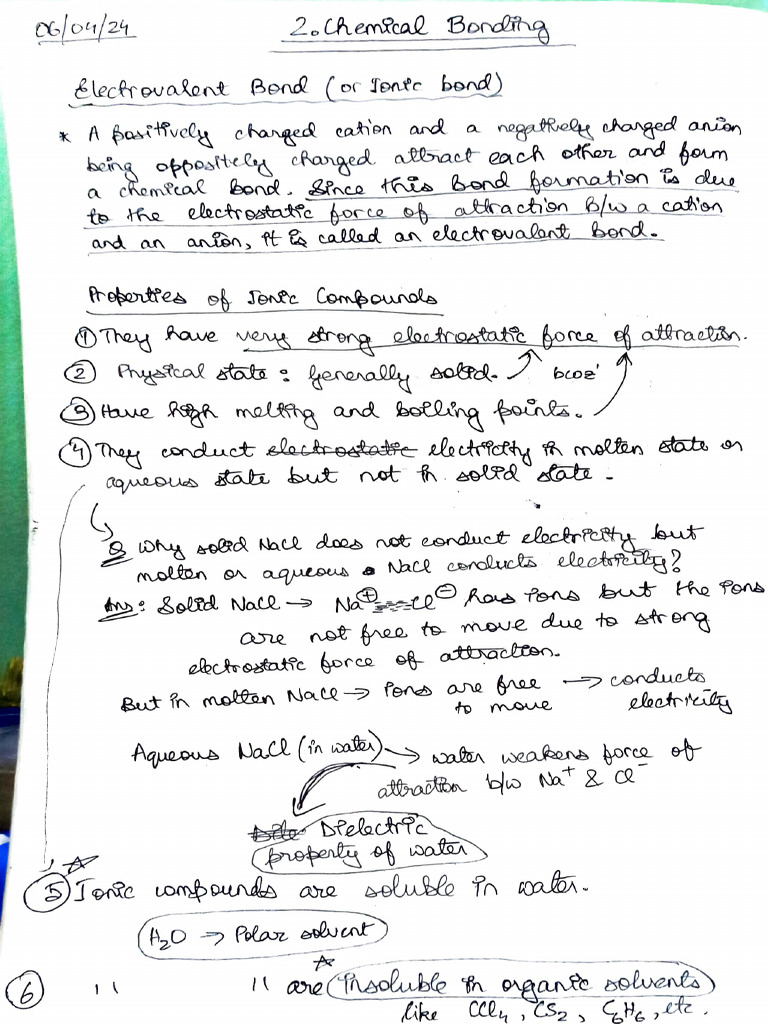 06/04/24
2. Chemical Bonding
Electrovalent Bond (or Ionic bond)
* A positively charged cation and a negatively charged anion
being oppositely charged attract each other and form
a chemical bond. Since this bond formation is due
to the electrostatic force of attraction b/w a cation
and an anion, it is called an electrovalent bond.
Properties of Ionic Compounds
① They have very strong electrostatic force of attraction.
② Physical state : Generally solid. bcoz'
③ Have high melting and boiling points.
④ They conduct electrostatic electricity in molten state or
aqueous state but not in solid state.
Q Why solid NaCl does not conduct electricity but
molten or aqueous NaCl conducts electricity?
Ans: Solid NaCl → Na⊕ Cl⊖ has ions but the ions
are not free to move due to strong
electrostatic force of attraction.
But in molten NaCl → ions are free → conducts
to move electricity
Aqueous NaCl (in water) → water weakens force of
attraction b/w Na⁺ & Cl⁻
Dielectric
property of water
⑤ Ionic compounds are soluble in water.
H₂O → Polar solvent
⑥ " " are insoluble in organic solvents
like CCl₄, CS₂, C₆H₆, etc.